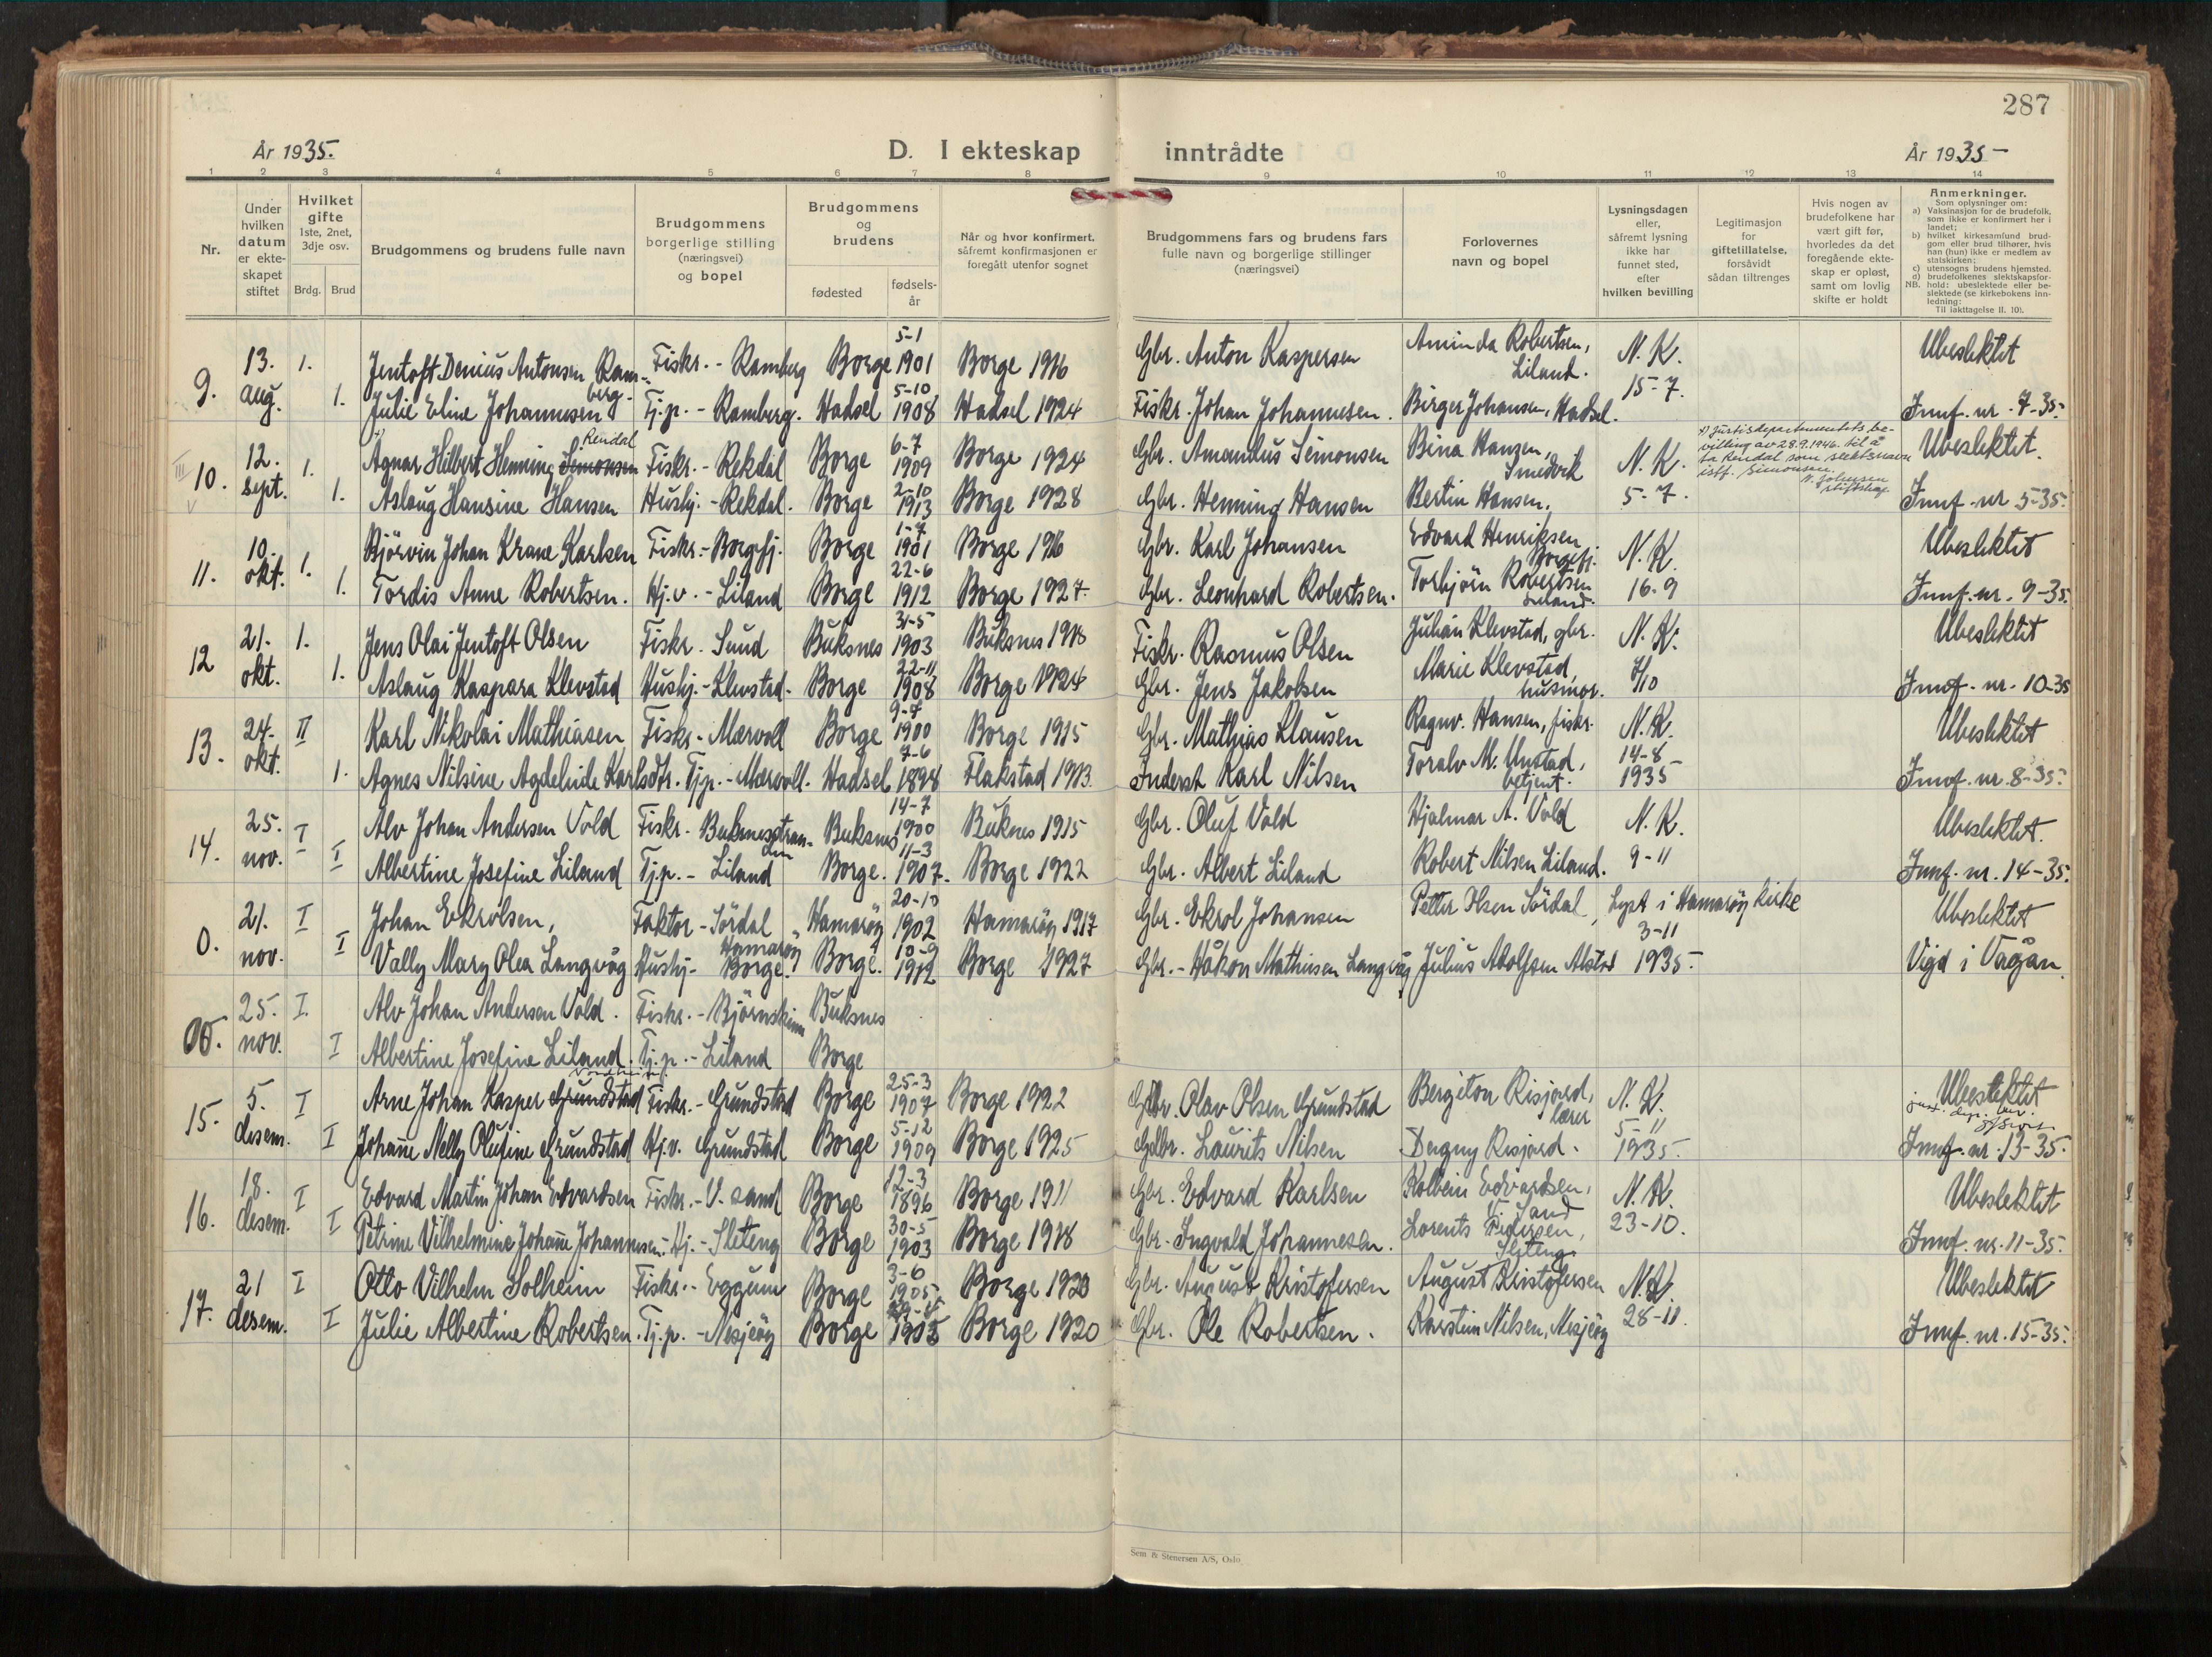 287
År 1935. D. I ekteskap inntrådte År 1935-
1 2 3 4 5 6 7 8 9 10 11 12 13 14
Nr.
Under hvilken datum er ekteskapet stiftet
Hvilket gifte 1ste, 2net, 3dje osv.
Brdg. Brud
Brudgommens og brudens fulle navn
Brudgommens borgerlige stilling (næringsvei) og bopel
Brudgommens og brudens
fødested
fødsels-år
Når og hvor konfirmert, såfremt konfirmasjonen er foregått utenfor sognet
Brudgommens fars og brudens fars fulle navn og borgerlige stillinger (næringsvei)
Forlovernes navn og bopel
Lysningsdagen eller, såfremt lysning ikke har funnet sted, efter hvilken bevilling
Legitimasjon for giftetillatelse, forsåvidt sådan tiltrenges
Hvis nogen av brudefolkene har vært gift før, hvorledes da det foregående ekteskap er opløst, samt om lovlig skifte er holdt
Anmerkninger.
Som oplysninger om:
a) Vaksinasjon for de brudefolk, som ikke er konfirmert her i landet;
b) hvilket kirkesamfund brudgom eller brud tilhører, hvis han (hun) ikke er medlem av statskirken;
c) utensogns brudens hjemsted.
d) brudefolkenes slektskapsforhold: ubeslektede eller beslektede (se kirkebokens innledning:
NB.
Til iakttagelse II. 10).
9. 13. aug. 1. Jentoft Denius Antonsen Ramberg. Fiskr. - Ramberg Borge 5-1 1901 Borge 1916 Gbr. Anton Kaspersen Aminda Robertsen, Liland. N. K. 15-7. Ubeslektet
1. Julie Eline Johannesen Tj.p. - Ramberg. Hadsel 5-10 1908 Hadsel 1924 Fiskr. Johan Johannesen. Birger Johansen, Hadsel. Innf. nr. 7-35.
10. 12. sept. 1. Agnar Hilbert Henning Simonsen Rendal Fiskr. - Rekdal Borge 6-7 1909 Borge 1924 Gbr. Amandus Simonsen Bina Hansen, Smedvik N. K. 5-7. Ubeslektet.
x) Justisdepartementets bevilling av 28.9.1946. til å ta Rendal som slektsnavn istf. Simonsen.
1. Aslaug Hansine Hansen Hushj. - Rekdal. Borge 2-10 1913 Borge 1928 Gbr. Henning Hansen Bertin Hansen. Innf. nr 5-35.
11. 10. okt. 1. Bjørvin Johan Krane Karlsen Fiskr. - Borgefj. Borge 1-7 1901 Borge 1916 Gbr. Karl Johansen Edvard Henriksen Borgefj. N. K. 16-9 Ubeslektet
1. Tordis Anne Robertsen. Hj.v. - Liland Borge 22-6 1912 Borge 1927. Gbr. Leonhard Robertsen. Torbjörn Robertsen Liland. Innf. nr. 9-35.
12 21. okt. 1. Jens Olai Jentoft Olsen Fiskr. Sund Buksnes 31-5 1903 Buksnes 1918 Fiskr. Rasmus Olsen Julian Klevstad, gbr. N. K. 7/10 Ubeslektet
1. Aslaug Kaspara Klevstad Hushj. - Klevstad. Borge 22-11 1908 Borge 1924 Gbr. Jens Jakobsen Marie Klevstad, husmor. Innf. nr. 10-35
13. 24. okt. II Karl Nikolai Mathiasen Fiskr. - Mærvoll Borge 9-7 1900 Borge 1915 Gbr. Mathias Klausen Ragnv. Hansen, fiskr. N. K. 14-8 1935 Ubeslektet
1. Agnes Nilsine Agdelinde Karlsdtr. Tj.p. - Mærvoll. Hadsel 7-6 1898 Flakstad 1913. Inderst Karl Nilsen Toralv M. Unstad, betjent. Innf. nr. 8-35.
14. 25. nov. I Alv Johan Andersen Vold Fiskr. Buksnesstranden Buksnes 14-7 1900 Buksnes 1915 Gbr. Oluf Vold Hjalmar A. Vold N. K. 9-11 Ubeslektet.
I Albertine Josefine Liland Tj.p. - Liland Borge. 11-3 1907. Borge 1922 Gbr. Albert Liland Robert Nilsen Liland. Innf. nr. 14-35.
0. 21. nov. I Johan Ekrolsen, Faktor - Sördal Hamaröy Hamaröy 20-10 1902 Hamaröy 1917 Gbr. Ekrol Johansen Petter Olsen Sördal, Lyst i Hamaröy kirke 3-11 1935. Ubeslektet
I Vally Mary Olea Langvåg Hushj- Borge. Borge. 10-9 1912 Borge 1927 Gbr. - Håkon Mathisen Langvåg Julius Adolfsen Alstad Vigd i Vågan.
00. 25. nov. I. Alv Johan Andersen Vold. Fiskr. - Björnskinn Buksnes
I Albertine Josefine Liland. Tj.p. - Liland Borge
15. 5. desem. I Arne Johan Kasper Grundstad Fiskr. - Grundstad Borge 25-3 1907 Borge 1922 Gdbr. Olav Olsen Grundstad Bergiton Risjord, lærer N. K. 5-11 1935. Ubeslektet
just. dep. bev.
I Johanne Nelly Olufine Grundstad Hj.v. Grundstad Borge 5-12 1909 Borge 1925 Gdbr. Laurits Nilsen Dagny Risjord. Innf. nr. 13-35.
16. 18. desem. I Edvard Martin Johan Edvardsen Fiskr. - V. sand Borge 12-3 1896 Borge 1911 Gbr. Edvard Karlsen Kolbein Edvardsen, V. Sand N. K. 23-10. Ubeslektet
I Petrine Vilhelmine Johanne Johannesen. Hj. - Sleteng Borge 30-5 1903 Borge 1918 Gbr. Ingvald Johannesen. Lorents Pedersen, Sleteng. Innf. nr. 11-35.
17. 21 desem. I Otto Vilhelm Solheim Fiskr. - Eggum Borge 3-6 1905 Borge 1920 Gbr. August Kristofersen August Kristofersen N. K. 28-11. Ubeslektet
I Julie Albertine Robertsen. Tj.p. - Nesjeöy Borge 1905 Borge 1920 Gbr. Ole Robertsen. Karstein Nilsen, Nesjeöy Innf. nr. 15-35.
Sem & Stenersen A/S, Oslo